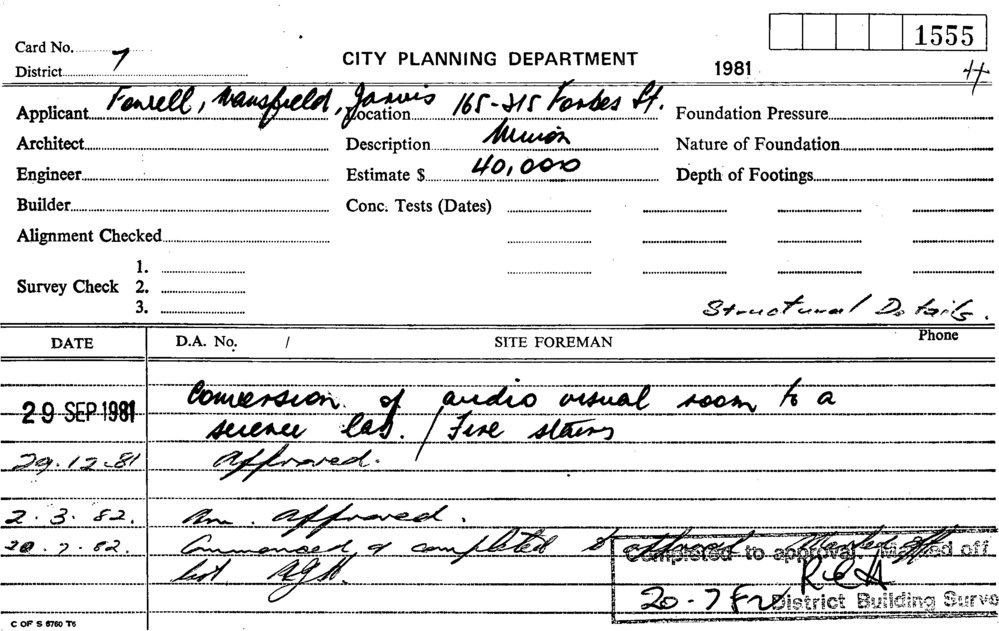 1555
Card No. 7
CITY PLANNING DEPARTMENT
District
1981
H
Applicant Fowell, Mansfield, Jarvis Location 165-215 Forbes St. Foundation Pressure
Architect Description Nature of Foundation
Engineer Estimate $ 40,000 Depth of Footings
Builder Conc. Tests (Dates)
Alignment Checked
1.
Survey Check 2.
3.
Structural Details.
DATE D.A. No. / SITE FOREMAN Phone
29 SEP 1981 Conversion of audio visual room to a
science lab. / Fire stairs
29.12.81 Approved.
2.3.82. Am. approved.
20.7.82. Commenced & completed to Marked off
list
Completed to approval. Marked off
20-7 82 District Building Surve
C OF S 6760 T6